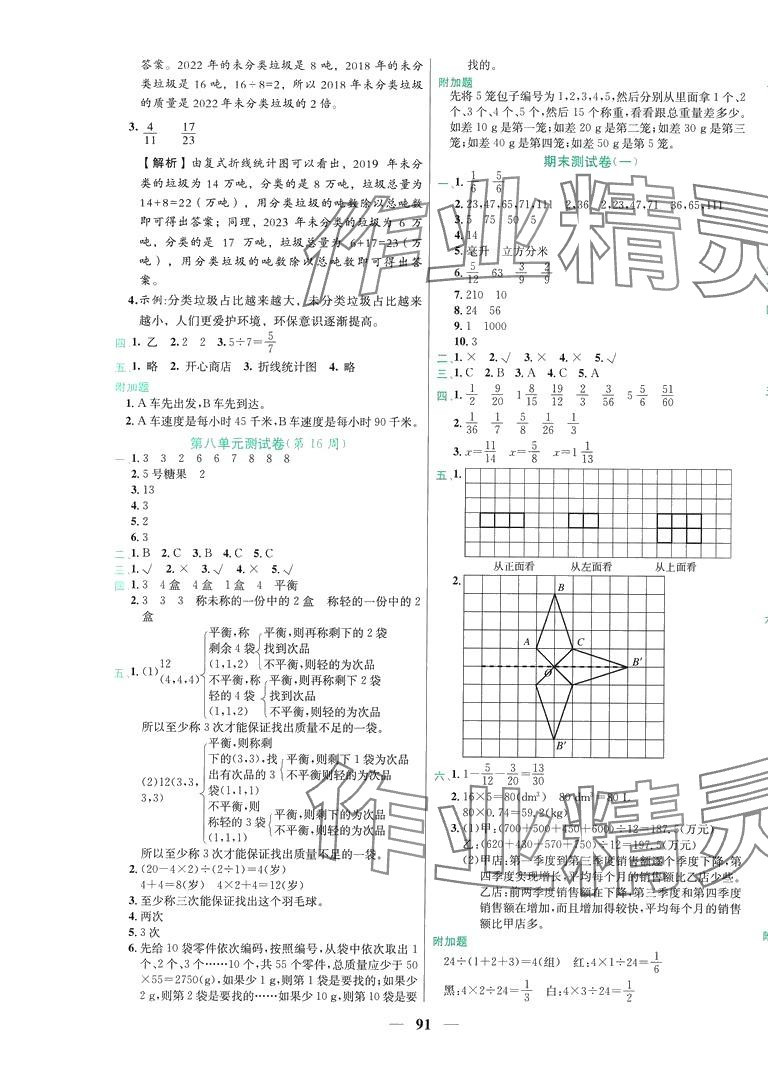 答案。2022 年的未分类垃圾是 8 吨，2018 年的未分
类垃圾是 16 吨，16÷8=2，所以 2018 年未分类垃圾
的质量是 2022 年未分类垃圾的 2 倍。
3. 4/11　17/23
【解析】由复式折线统计图可以看出，2019 年未分
类的垃圾为 14 万吨，分类的是 8 万吨，垃圾总量为
14+8=22（万吨），用分类垃圾的吨数除以总吨数
即可得出答案；同理，2023 年未分类的垃圾为 6 万
吨，分类的是 17 万吨，垃圾总量为 6+17=23（万
吨），用分类垃圾的吨数除以总吨数即可得出答
案。
4. 示例：分类垃圾占比越来越大，未分类垃圾占比越来
越小，人们更爱护环境，环保意识逐渐提高。
四、1. 乙　2. 2　2　3. 5÷7=5/7
五、1. 略　2. 开心商店　3. 折线统计图　4. 略
附加题
1. A 车先出发，B 车先到达。
2. A 车速度是每小时 45 千米，B 车速度是每小时 90 千米。
第八单元测试卷（第 16 周）
一、1. 3　3　2　6　6　7　8　8　8
2. 5 号糖果　2
3. 13
4. 3
5. 2
6. 3
二、1. B　2. C　3. B　4. C　5. C
三、1. √　2. ×　3. √　4. ×　5. √
四、1. 3　4 盒　4 盒　1 盒　4　平衡
2. 3　3　3　称未称的一份中的 2 盒　称轻的一份中的 2
盒
五、1. (1) 12 (4,4,4)
平衡，称剩余 4 袋 (1,1,2)
平衡，则再称剩下的 2 袋找到次品
不平衡，则轻的为次品
不平衡，称轻的 4 袋 (1,1,2)
平衡，则再称剩下的 2 袋找到次品
不平衡，则轻的为次品
所以至少称 3 次才能保证找出质量不足的一袋。
(2) 12(3,3,3,3)
平衡，则称剩下的(3,3)，找出有次品的 3 袋(1,1,1)
平衡，则剩下 1 袋为次品
不平衡，则轻的为次品
不平衡，则称轻的 3 袋(1,1,1)
平衡，则剩下的为次品
不平衡，则轻的为次品
所以至少称 3 次才能保证找出质量不足的一袋。
2. (20−4×2)÷(2+1)=4(岁)
4+4=8(岁)　4×2+4=12(岁)
3. 至少称三次能保证找出这个羽毛球。
4. 两次
5. 3 次
6. 先给 10 袋零件依次编码，按照编号，从袋中依次取出 1
个、2 个、3 个……10 个，共 55 个零件，总质量应少于 50
×55=2750(g)，如果少 1 g，则第 1 袋是要找的；如果少
2 g，则第 2 袋是要找的……如果少 10 g，则第 10 袋是要
找的。
附加题
先将 5 笼包子编号为 1，2，3，4，5，然后分别从里面拿 1 个、2
个、3 个、4 个、5 个，然后 15 个称重，看看跟总重量差多少。
如差 10 g 是第一笼；如差 20 g 是第二笼；如差 30 g 是第三
笼；如差 40 g 是第四笼；如差 50 g 是第 5 笼。
期末测试卷（一）
一、1. 1/6　5/6
2. 23,47,65,71,111　2,36　2,23,47,71　36,65,111
3. 5　75　50　5
4. 14
5. 毫升　立方分米
6. 5/12　63　3/9　4/9
7. 210　10
8. 24　56
9. 1　1000
10. 3
二、1. ×　2. √　3. ×　4. ×　5. √
三、1. C　2. B　3. A　4. C　5. A
四、1. 1/2　9/20　1 8/15　19/12　2 2/3　3/56　5 5/6　51/60
2. 1/36　1/7　5/8　1/26　1/3
3. x=11/14　x=5/8　x=1 1/13
五、1.
从正面看　从左面看　从上面看
2.
B
A　C
O　B′
B′
六、1. 1−5/12−3/20=13/30
2. 16×5=80(dm³)　80 dm³=80 L
80×0.74=59.2(kg)
3. (1)甲：(700+500+450+600)÷12=187.5(万元)
乙：(620+430+570+750)÷12=197.5(万元)
(2)甲店：第一季度到第三季度销售额逐个季度下降，第
四季度实现增长，平均每个月的销售额比乙店少些。
乙店：前两季度销售额在下降，第三季度和第四季度的销售
额在增加，而且增加得较快，平均每个月的销售
额比甲店多。
附加题
24÷(1+2+3)=4(组)　红：4×1÷24=1/6
黑：4×2÷24=1/3　白：4×3÷24=1/2
— 91 —
作业精灵
作业精灵